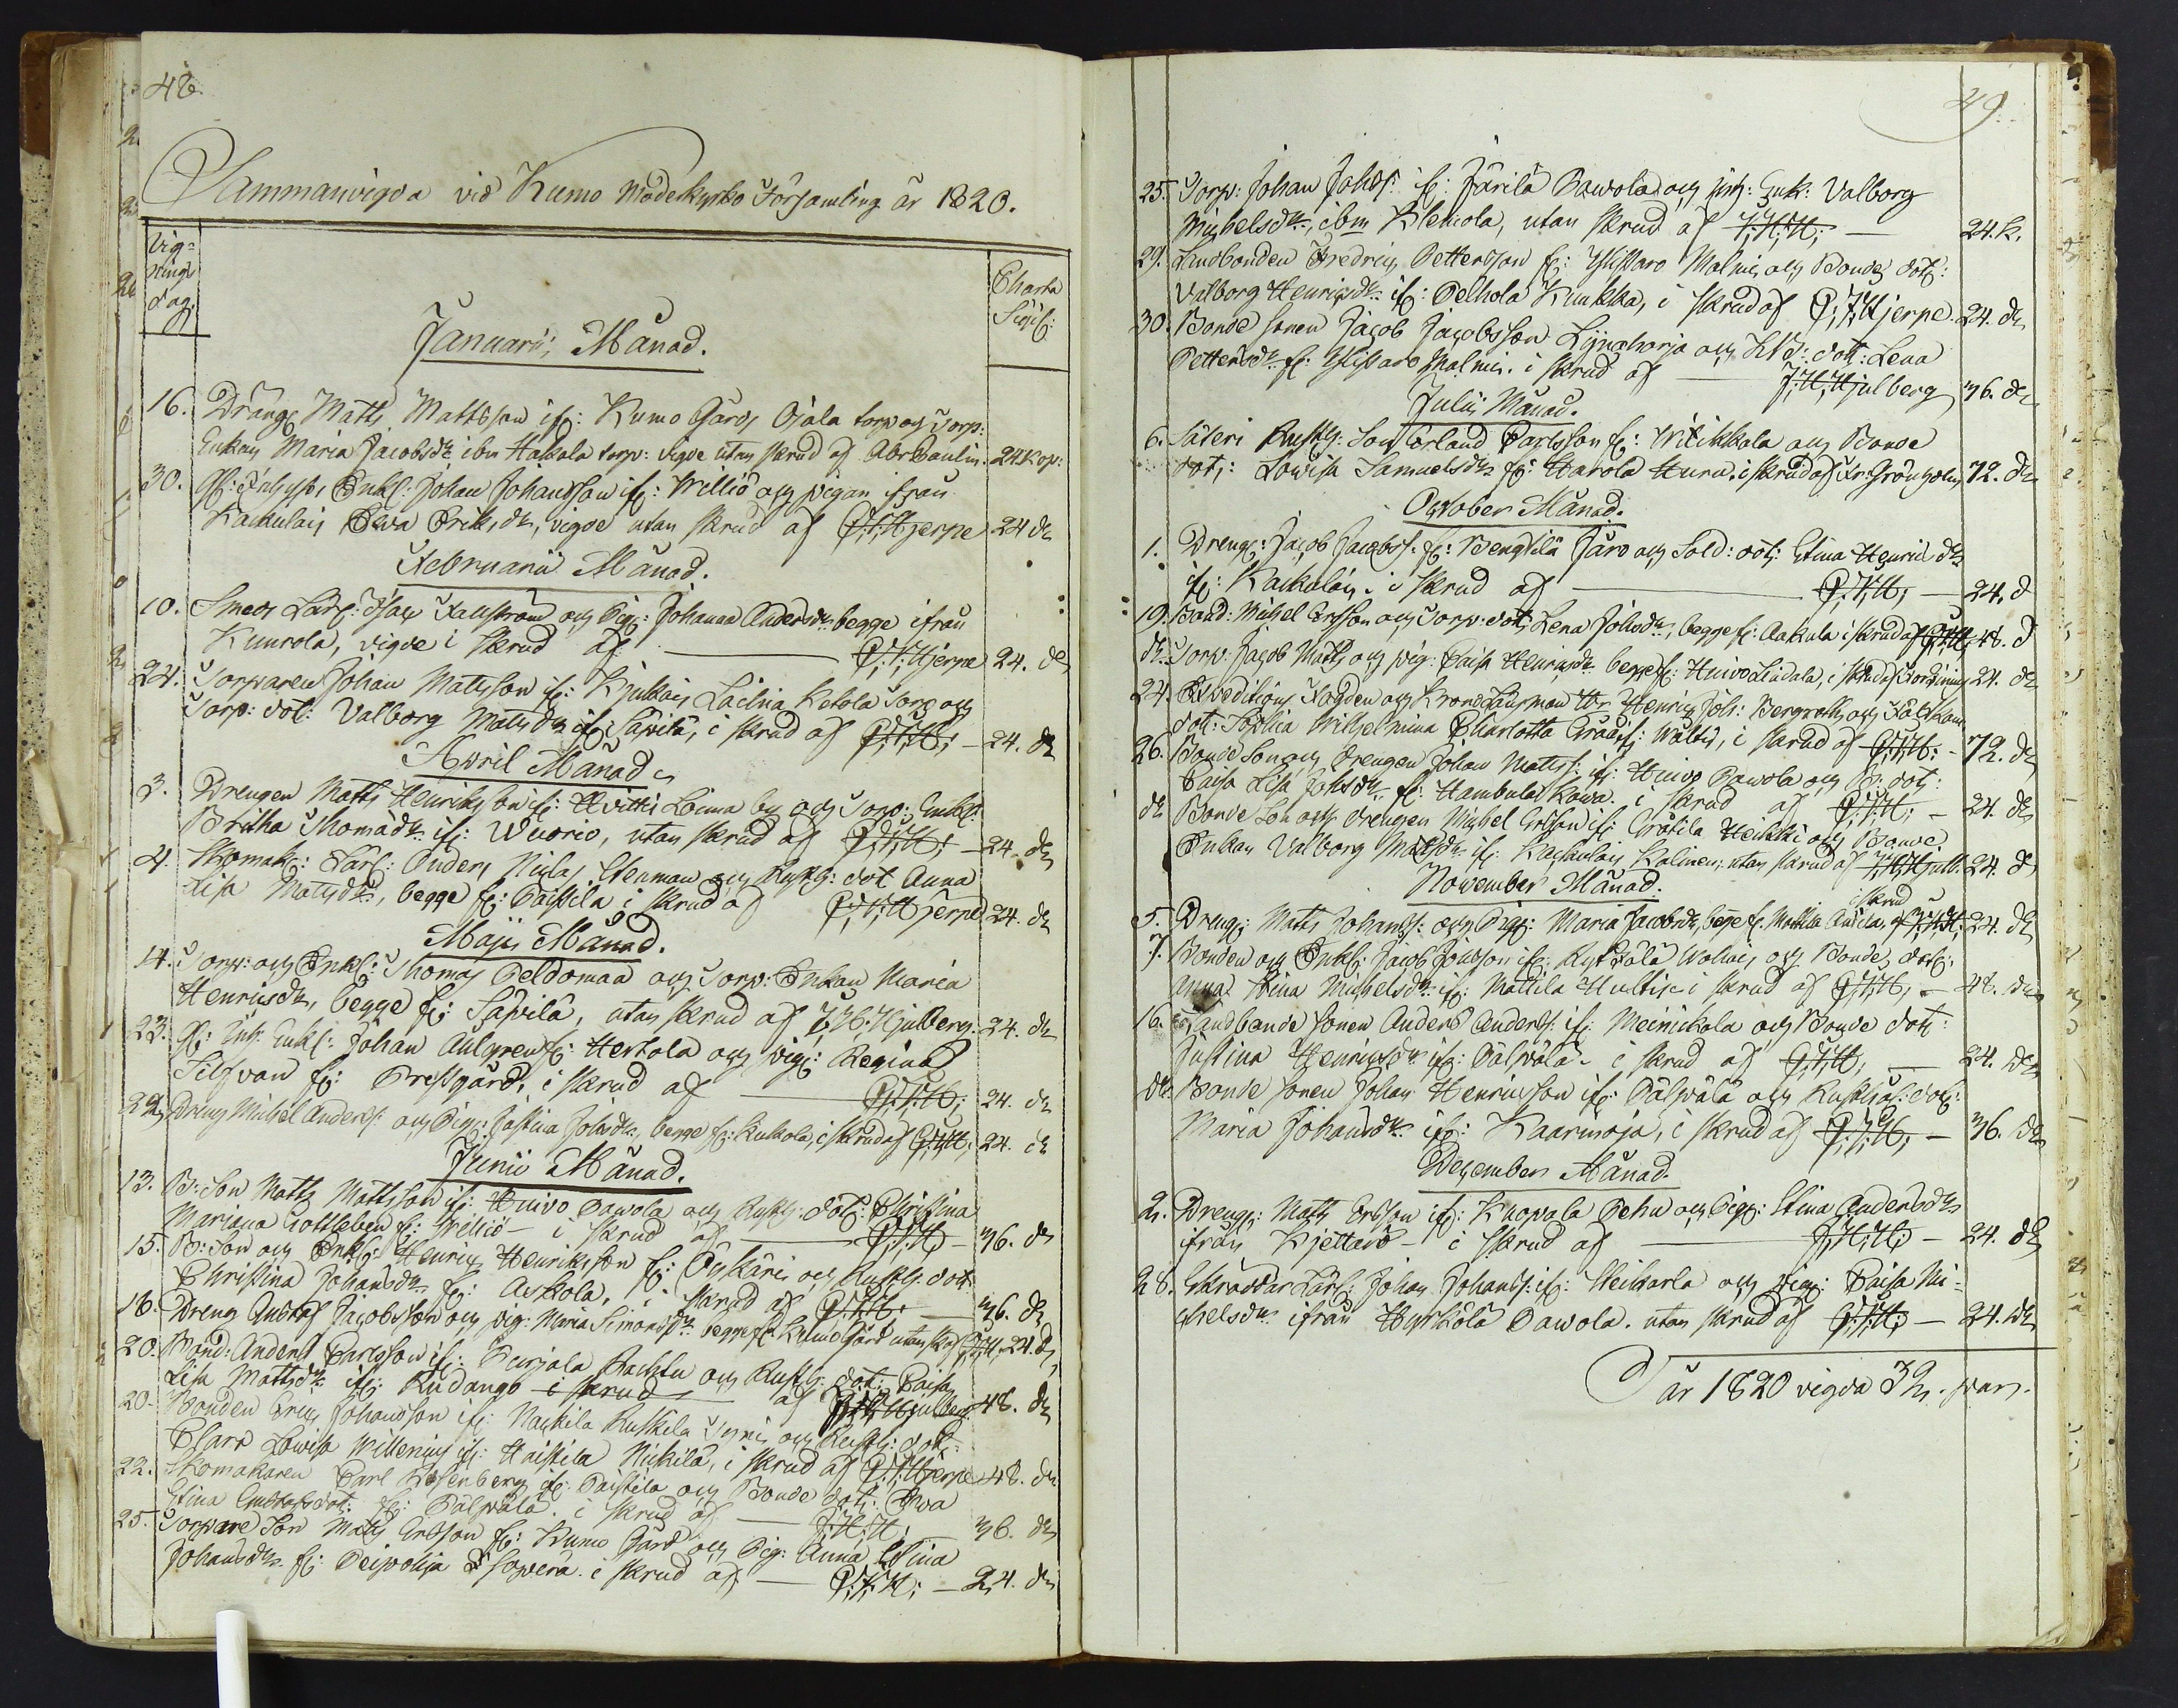 48.
Sammanvigda vid Kumo Moderkyrko Församling år 1820.
Vig=
nings
dag.
Charta
Sigil:
Januarii Månad.
16. Dräng Matts Mattsson if: Kumo Gårds Ojala torp och Torp:
Enkan Maria Jacobsdr ibm Hakola torp: vigde utan skrud af Abr Paulin. 24 Kop:
30. Enkl: Johan Johansson if: Willio och pigan ifrån
Kackulais Ewa Eriksdr, vigde utan skrud af G: F: Hjerpe 24 do
Februarii Månad.
10. Smeds Lärl: Isac Fallström och Pig: Johanna Andersdr begge ifrån
Kunnola, vigde i skrud af G: F: Hjerpe 24. do
24. Torparen Johan Mattsson if: Kjulkais Lailia Ketola Torp och
Torp: dot: Valborg Mattsdr if: Säpilä, i skrud af G: F: H: 24. do
April Månad
3. Drengen Matts Henriksson if: Hvitti Loima by och Torp: Enkl:
Britha Thomædr if: Wuorio, utan skrud af G: F: H: 24. do
4. Skomak: Lärl: Anders Niclas Stenman och Rusth: dot Anna
Lisa Mattsdr, begge fr: Paistila i skrud af G: F: Hjerpe 24. do
Maji Månad.
14. Torp: och Enkl: Thomas Peldomaa och Torp: Enkan Maria
Henricsdr, begge fr: Säpilä, utan skrud af J: H: Hjulberg. 24. do
23. Enkl: Johan Aulgren fr: Hertola och pig: Regina
Silfvan fr: Prestgård, i skrud af G: F: H: 24. do
22. Dreng Michel Anders: och Pig: Justina Johsdr, begge fr: Kukola, i skrud af G: F: H: 24. do
Junii Månad.
13. B: Son Matts Mattsson if: Huivo Pawola och Rusth: dot: Christina
Mariana Gottleben fr: Willio i skrud af G: F: H: 36. do
15. B: Son och Enkl: Henric Henriksson fr: Äyskäri och Rusth: dot:
Christina Johansdr fr: Askola, i skrud af G: F: H: 36. do
16. Dreng Gustaf Jacobsson och pig: Maria Simonsdr begge fr Kumo Gård utan skr af G: F: H: 24. do
20. Bond: Anders Carlsson if: Purjala Pachtu och Rusth: dot: Caisa
Lisa Mattsdr if: Rudanko i skrud af J: H: Hjulberg 48. do
20. Bonden Eric Johansson if: Nackila Ruskila Symi och Rusth: dot:
Clara Lovisa Willenius if: Haistila Nickilä, i skrud af G: F: Hjerpe 48. do
22. Skomakaren Carl Rosenberg if: Paistila och Bonde dot: Ewa
Stina Gustafsdot: fr: Pälpälä i skrud af J: H: H: 36. do
25. Torpare Son Matts Ersson fr: Kumo Gård och Pig: Anna Stina
Johansdr fr: Peipohja Isoperä i skrud af G: F: H: 24. do
49
25. Torp: Johan Johss: if: Järilä Pawola och Enk: Valborg
Michelsdr, ibm Klemola, utan skrud af J: H: H: 24. K.
29. Landbonden Fredric Pettersson fr: Ylistaro Malmi och Bonde dot:
Valborg Henricsdr if: Pelhola Kuukka, i skrud af G: F: Hjerpe. 24. do
30. Bonde sonen Jacob Jacobsson Lijnaharja och dot: Lena
Pettersdr fr: Ylistaro Malmi. i skrud af J: H: Hjulberg 36. do
Julii Månad.
6. Säteri Rusth: Son Erland Carlsson fr: Witikkala och Bonde
dot: Lovisa Samuelsdr fr: Harola Huru. i skrud af Fr: Gröngholm 72. do
October Månad.
1. Dreng: Jacob Jacobss: fr: Bengtilä Järo och Sold: dot: Stina Henricsdr
if: Kackulais. i skrud af G: F: H: 24. d
19. Bond: Michel Ersson och Torp: dot: Lena Johsdr, begge fr: Aakula i skrud af G: F: H: 48. d
do. Torp: Jacob Matts och pig: Caisa Henricsdr begge fr: Huivo Laidala, i skrud af Fordning 24. do
24. Expeditions Fogden och Krono Länsman Hr Henric Joh: Bergroth och
dot: Sophia Wilhelmina Charlotta Gråå if: Waltis, i skrud af G: F: H: 72. do
26. Bonde Son och drengen Johan Mattss: if: Huivo Pawola och B: dot:
Caisa Lisa Johsdr fr: Hambula Kowa. i skrud af G: F: H: 24. do
do Bonde Son och drengen Michel Ersson if: Gråtila Heikki och Bonde
Enkan Valborg Mattsdr if: Kackulais Kalinen, utan skrud af J: H: Hjulb. 24. do
November Månad.
5. Dreng: Matts Johanss: och Pig: Maria Jacobsdr, begge fr. Mattila Anttila, i skrud af J: H: H: 24. do
7. Bonden och Enkl: Jacob Jönsson if: Kyttälä Wohvi, och Bonde dot:
Anna Stina Michelsdr if: Mattila Hultis i skrud af G: F: H: 48. do
16. Landbonde sonen Anders Anderss: if: Meinickola och Bonde dot:
Justina Henricsdr if: Pälpälä i skrud af G: F: H: 24. do
do Bonde sonen Johan Henricsson if: Pälpälä och Rusthål: dot:
Maria Johansdr if: Kaarinoja, i skrud af G: F: H: 36. do
December Månad.
2. Dreng: Matts Ersson if: Knopala Pehu och Pig: Stina Andersdr
ifrån Kjettarö i skrud af J: H: H: 24. do
28. Skräddar Lärl: Johan Johanss: if: Heikarla och pig: Caisa Mi-
chelsdr ifrån Hyrkölä Pawola. utan skrud af G: F: H: 24. do
S: år 1820 vigda 32. par.